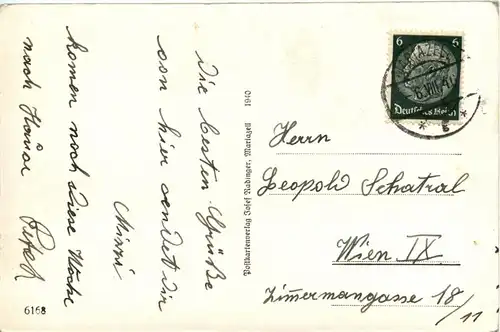 Die besten Grüße
von hier sendet dir
Mirzi
komen noch diese Woche
nach Hause
6168
Postkartenverlag Josef Radinger, Mariazell 1910
6 6
Deutsches Reich
Herrn
Leopold Schatral
Wien IX
Zimmermangasse 18/11